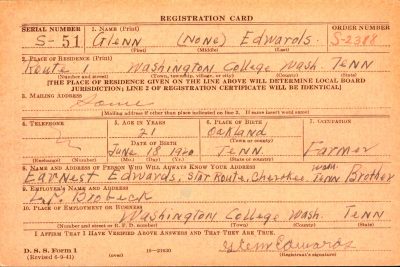 REGISTRATION CARD
SERIAL NUMBER 1. NAME (Print) ORDER NUMBER
S-51 Glenn (None) Edwards S-2388
(First) (Middle) (Last)
2. PLACE OF RESIDENCE (Print)
Route 1 Washington College Wash. Tenn
(Number and street) (Town, township, village, or city) (County) (State)
[THE PLACE OF RESIDENCE GIVEN ON THE LINE ABOVE WILL DETERMINE LOCAL BOARD
JURISDICTION; LINE 2 OF REGISTRATION CERTIFICATE WILL BE IDENTICAL]
3. MAILING ADDRESS
Same
[Mailing address if other than place indicated on line 2. If same insert word same]
4. TELEPHONE 5. AGE IN YEARS 6. PLACE OF BIRTH 7. OCCUPATION
21 Oakland
DATE OF BIRTH (Town or county)
June 18 1920 Tenn. Farmer
(Exchange) (Number) (Mo.) (Day) (Yr.) (State or country)
8. NAME AND ADDRESS OF PERSON WHO WILL ALWAYS KNOW YOUR ADDRESS Wash
Earnest Edwards, Star Route, Cherokee, Tenn Brother
9. EMPLOYER'S NAME AND ADDRESS
Brobeck
10. PLACE OF EMPLOYMENT OR BUSINESS
Washington College Wash. Tenn
(Number and street or R. F. D. number) (Town) (County) (State)
I AFFIRM THAT I HAVE VERIFIED ABOVE ANSWERS AND THAT THEY ARE TRUE.
D. S. S. Form 1 Glenn Edwards
(Revised 6-9-41) (over) 16—21630 (Registrant's signature)